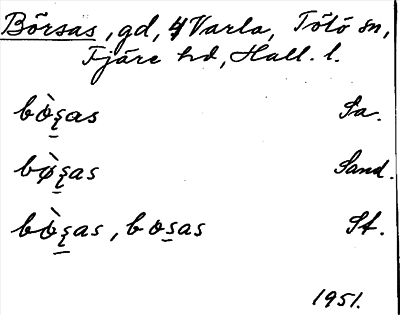 Börsas, gd, 4 Varla, Tölö sn,
Fjäre hd, Hall. l.
bò̤s̨as Sa.
bø̀s̨as Sand.
bò̤s̨as, bosas St.
1951.